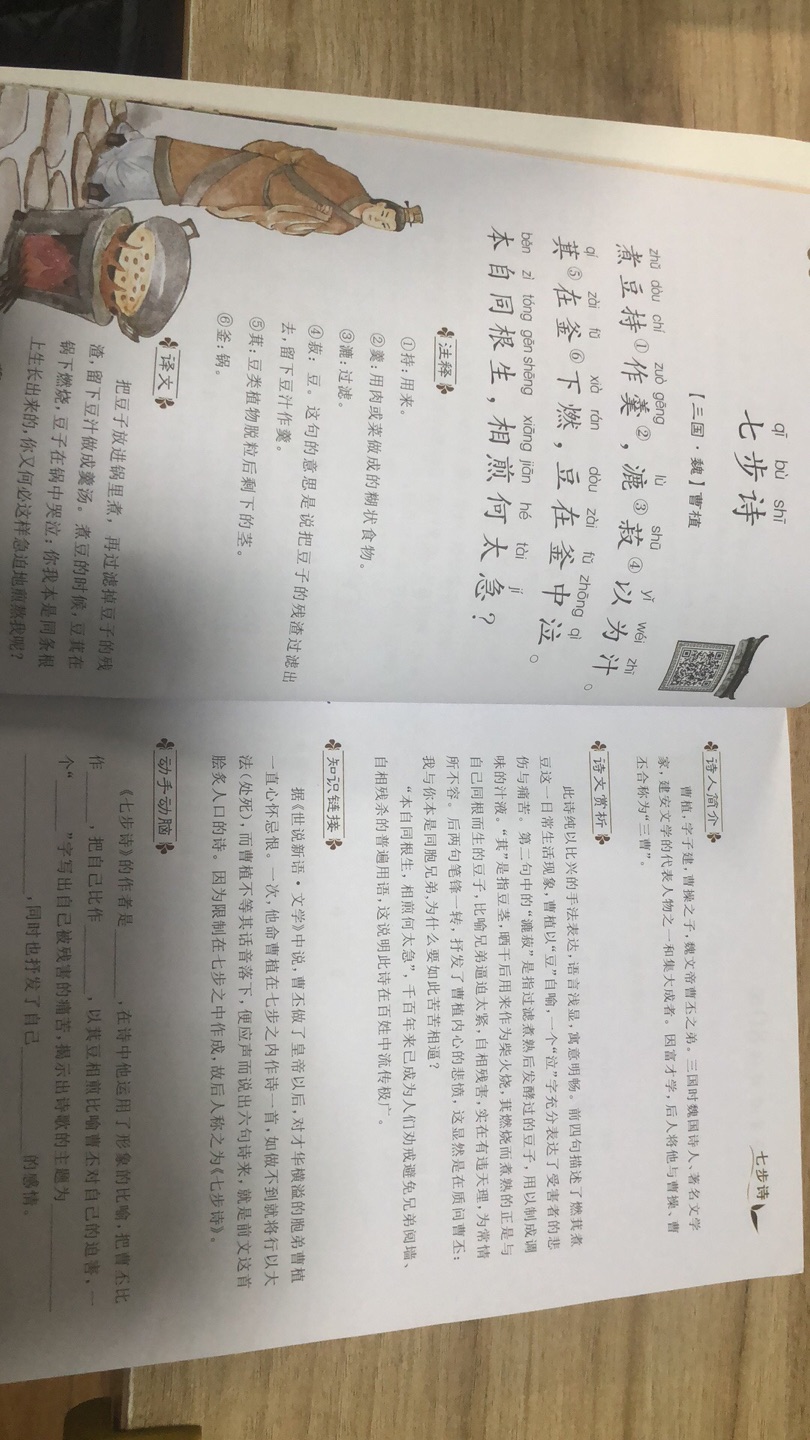 qī bù shī
七步诗
【三国·魏】曹植
zhǔ dòu chí zuò gēng lù shū yǐ wéi zhī
煮豆持①作羹②，漉③菽④以为汁。
qí zài fǔ xià rán dòu zài fǔ zhōng qì
萁⑤在釜⑥下燃，豆在釜中泣。
běn zì tóng gēn shēng xiāng jiān hé tài jí
本自同根生，相煎何太急？
注释
①持：用来。
②羹：用肉或菜做成的糊状食物。
③漉：过滤。
④菽：豆。这句的意思是说把豆子的残渣过滤出
去，留下豆汁作羹。
⑤萁：豆类植物脱粒后剩下的茎。
⑥釜：锅。
译文
把豆子放进锅里煮，再过滤掉豆子的残
渣，留下豆汁做成羹汤。煮豆的时候，豆萁在
锅下燃烧，豆子在锅中哭泣：你我本是同条根
上生长出来的，你又何必这样急迫地煎熬我呢？
七步诗
诗人简介
曹植，字子建，曹操之子，魏文帝曹丕之弟。三国时魏国诗人、著名文学
家，建安文学的代表人物之一和集大成者。因富才学，后人将他与曹操、曹
丕合称为“三曹”。
诗文赏析
此诗纯以比兴的手法表达，语言浅显，寓意明畅。前四句描述了燃萁煮
豆这一日常生活现象，曹植以“豆”自喻，一个“泣”字充分表达了受害者的悲
伤与痛苦。第二句中的“漉菽”是指过滤煮熟后发酵过的豆子，用以制成调
味的汁液。“萁”是指豆茎，晒干后用来作为柴火烧，萁燃烧而煮熟的正是与
自己同根而生的豆子，比喻兄弟逼迫太紧，自相残害，实在有违天理，为常情
所不容。后两句笔锋一转，抒发了曹植内心的悲愤，这显然是在质问曹丕：
我与你本是同胞兄弟，为什么要如此苦苦相逼？
“本自同根生，相煎何太急”，千百年来已成为人们劝戒避免兄弟阋墙、
自相残杀的普遍用语，这说明此诗在百姓中流传极广。
知识链接
据《世说新语·文学》中说，曹丕做了皇帝以后，对才华横溢的胞弟曹植
一直心怀忌恨。一次，他命曹植在七步之内作诗一首，如做不到就将行以大
法（处死），而曹植不等其话音落下，便应声而说出六句诗来，就是前文这首
脍炙人口的诗。因为限制在七步之中作成，故后人称之为《七步诗》。
动手动脑
《七步诗》的作者是______，在诗中他运用了形象的比喻，把曹丕比
作______，把自己比作______，以萁豆相煎比喻曹丕对自己的迫害，一
个“______”字写出自己被残害的痛苦，揭示出诗歌的主题为______
______，同时也抒发了自己______的感情。